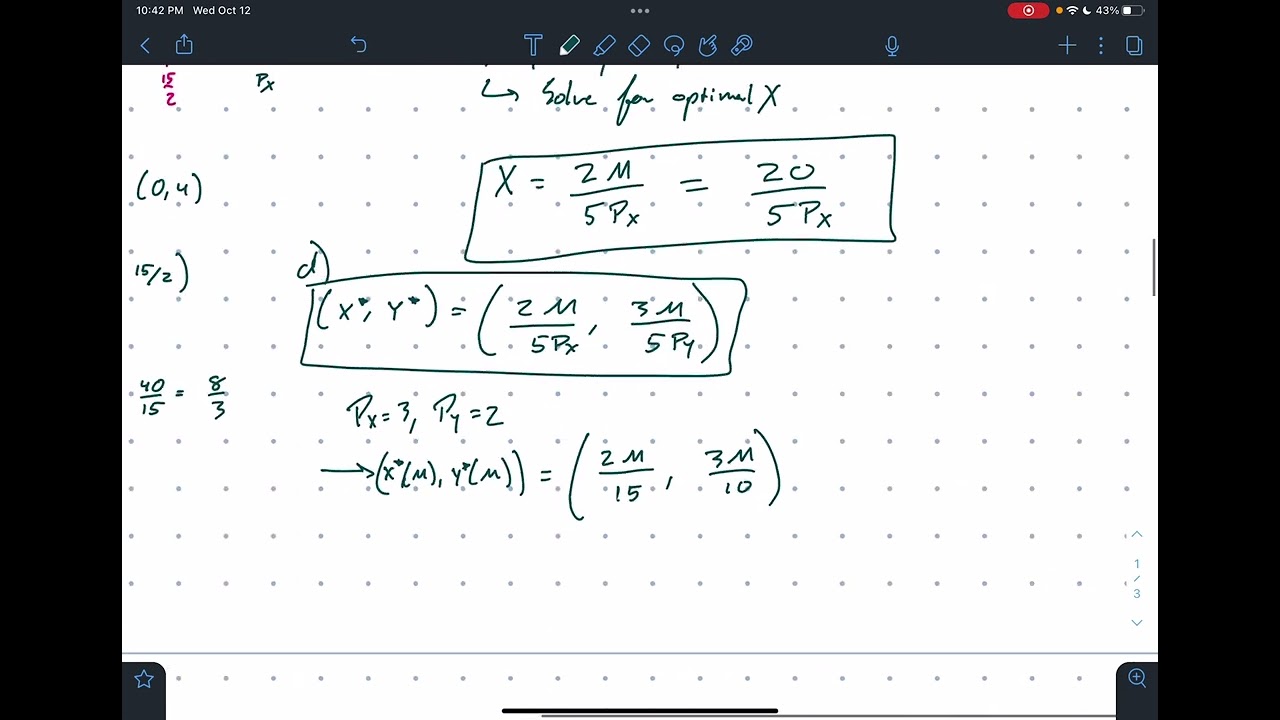 10:42 PM Wed Oct 12
43%
T
15
2
Px
↳ Solve for optimal X
(0,4)
X = 2M/5Px = 20/5Px
d)
15/2)
(X*, Y*) = (2M/5Px, 3M/5Py)
40/15 = 8/3
Px=3, Py=2
→(X*(M), Y*(M)) = (2M/15, 3M/10)
1
/
3